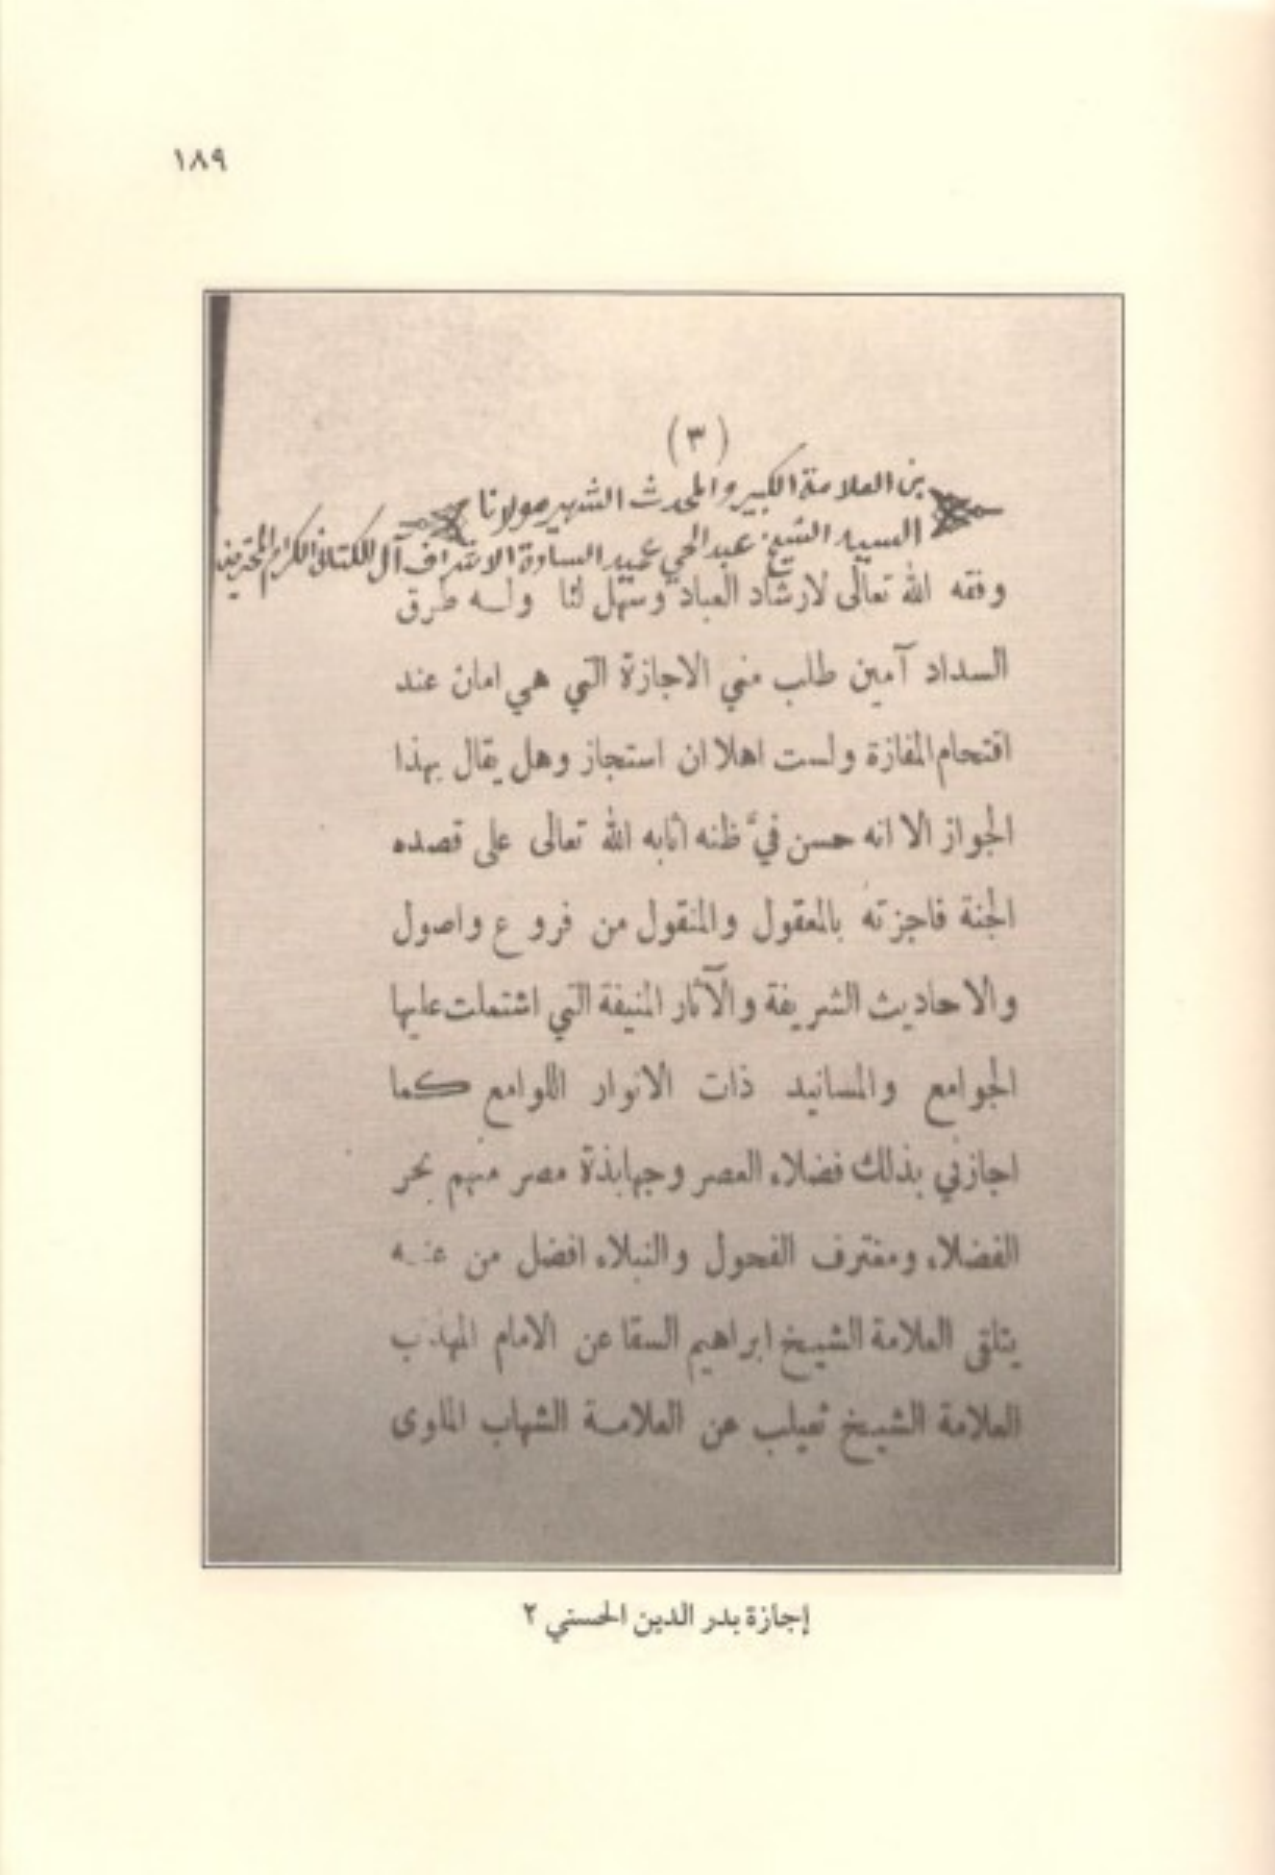 ١٨٩
(٣)
بن العلامة الكبير والمحدث الشهير مولانا
السيد الشيخ عبد الحي عميد السادة الاشراف آل الكتاني الكرام
وفقه الله تعالى لارشاد العباد وسهل لنا وله طرق
السداد آمين طلب مني الاجازة التي هي امان عند
اقتحام المفازة ولست اهلا ان استجاز وهل يقال بهذا
الجواز الا انه حسن فيَّ ظنه اثابه الله تعالى على قصده
الجنة فاجزته بالمعقول والمنقول من فروع واصول
والاحاديث الشريفة والآثار المنيفة التي اشتملت عليها
الجوامع والمسانيد ذات الانوار اللوامع كما
اجازني بذلك فضلاء العصر وجهابذة مصر منهم بحر
الفضلاء ومغترف الفحول والنبلاء افضل من عنه
يتلقى العلامة الشيخ ابراهيم السقا عن الامام المهذب
العلامة الشيخ ثعيلب عن العلامة الشهاب الملوى
إجازة بدر الدين الحسني ٢